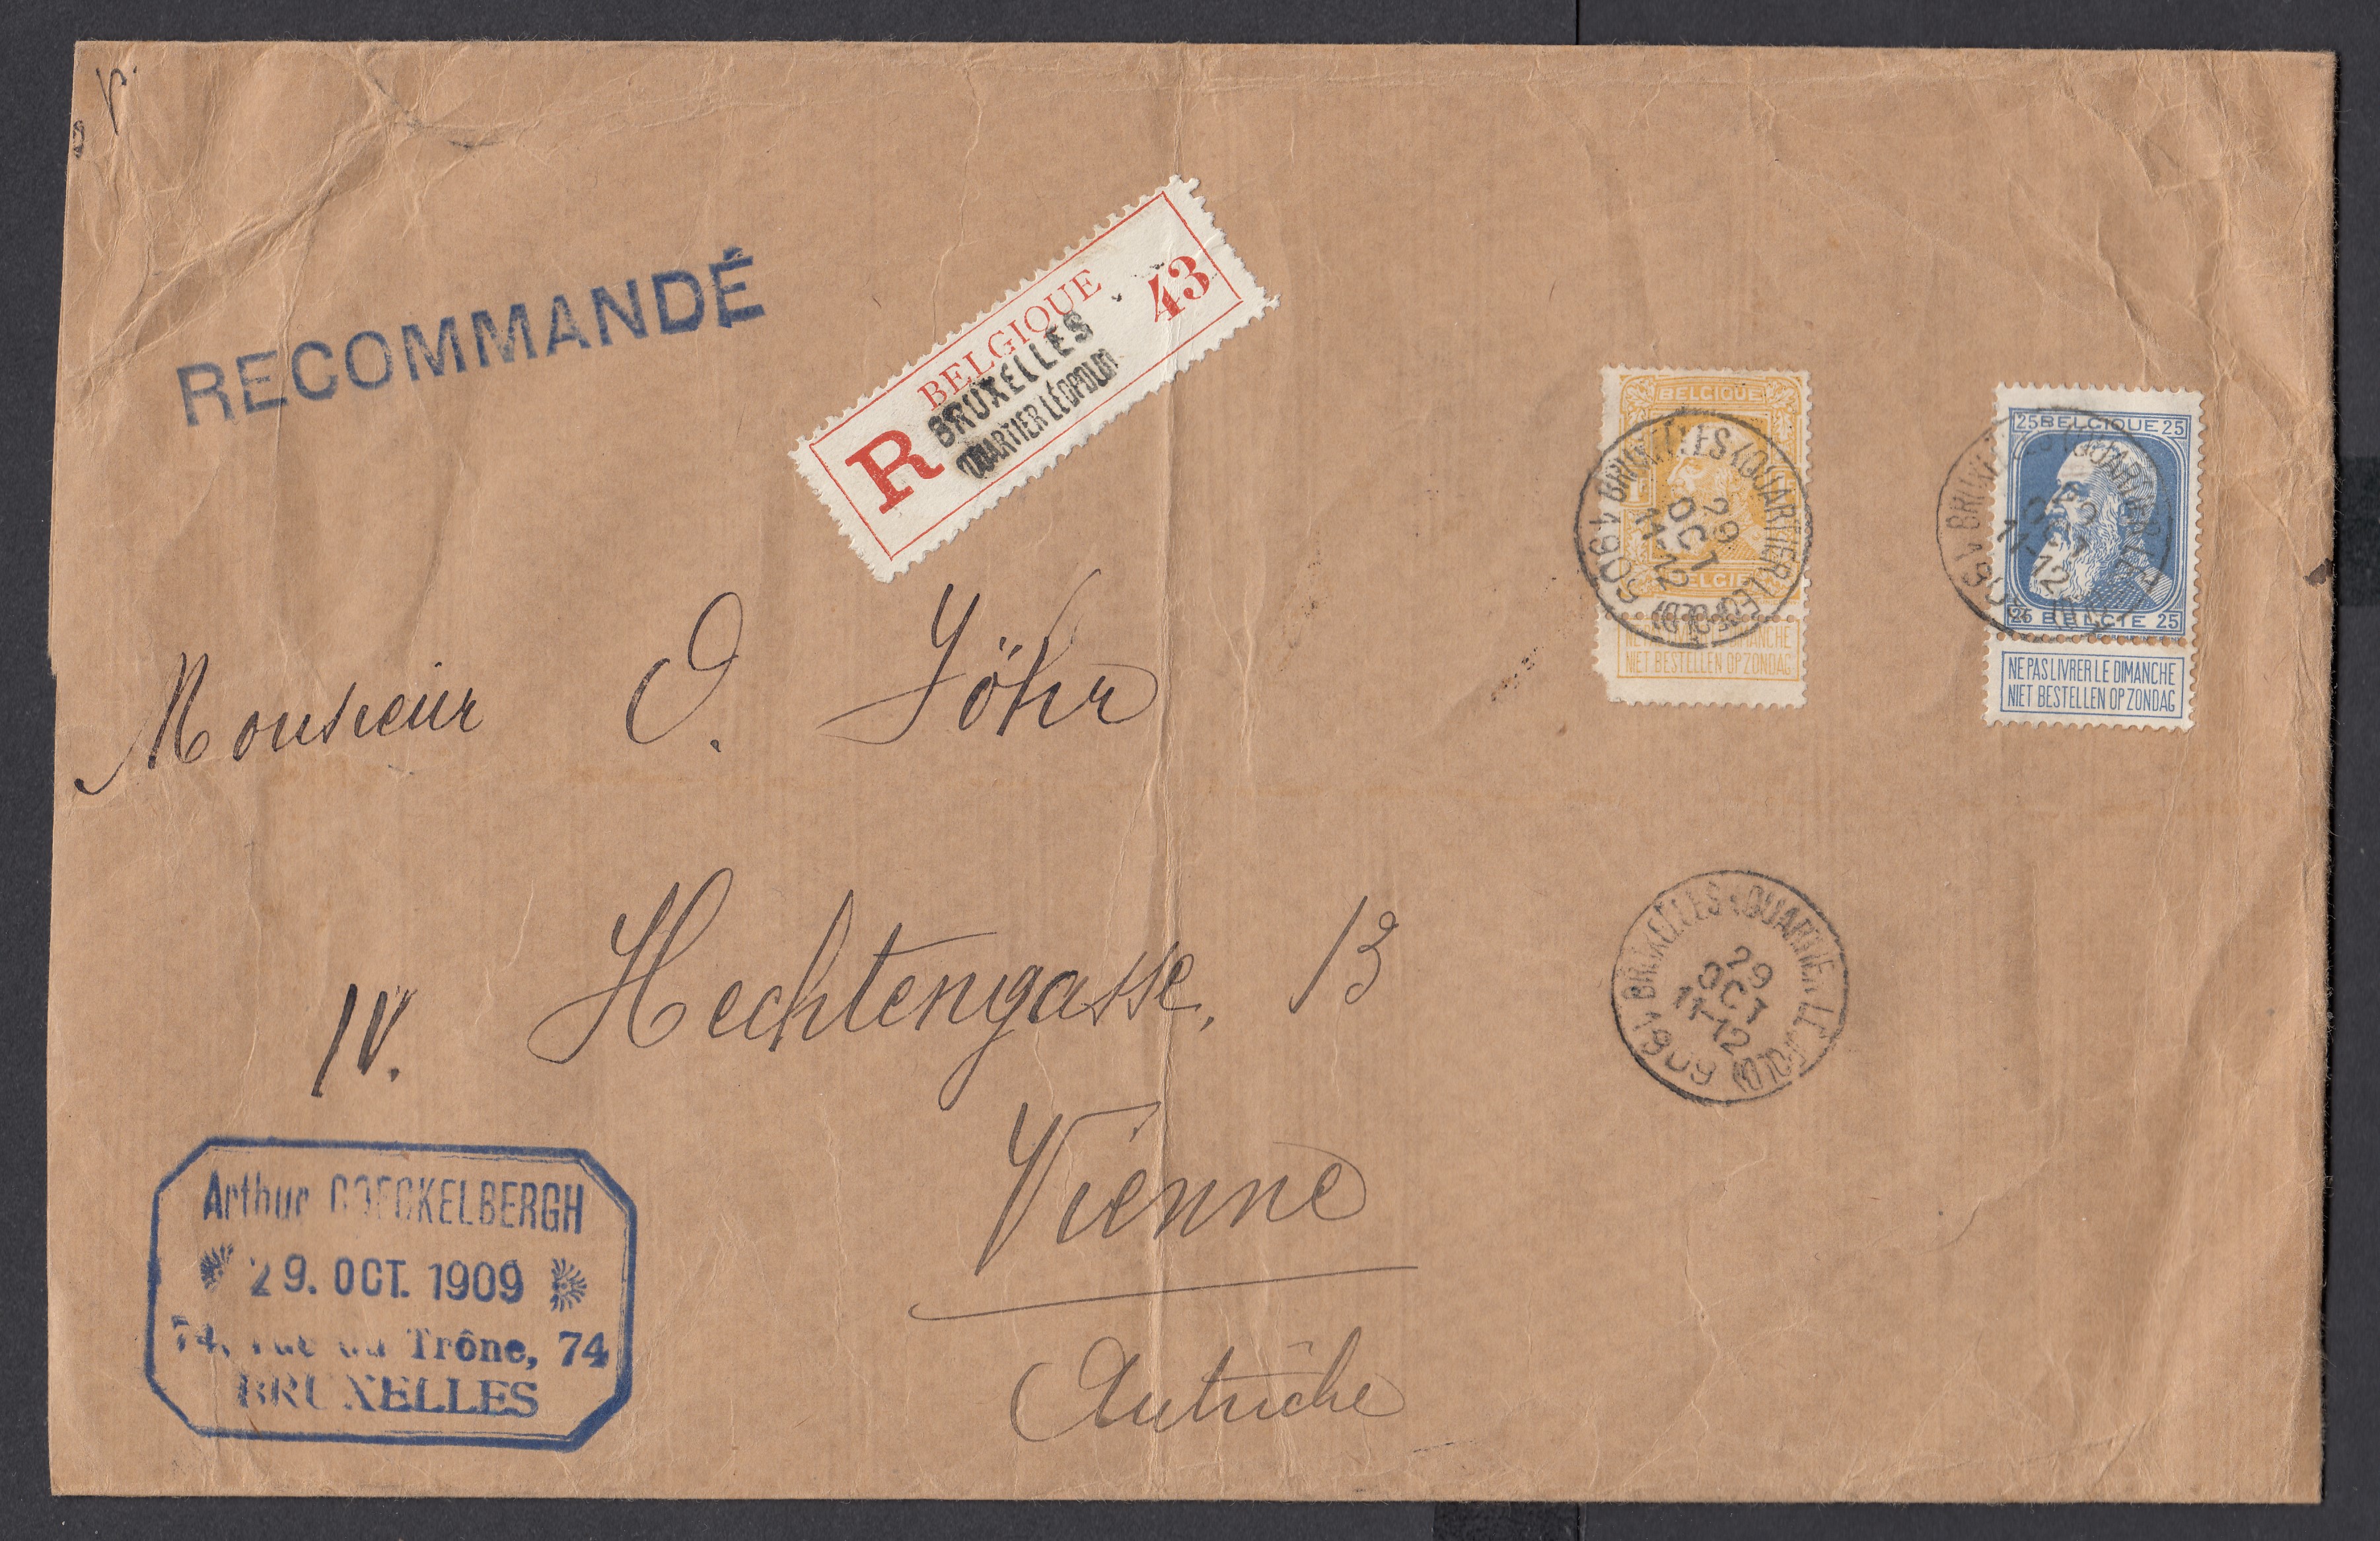 RECOMMANDÉ
BELGIQUE
BRUXELLES
QUARTIER LÉOPOLD
R
43
BELGIQUE
BELGIË
NE PAS LIVRER LE DIMANCHE
NIET BESTELLEN OP ZONDAG
BRUXELLES (QUARTIER LEOPOLD)
29
OCT
11-12
1909
25 BELGIQUE 25
25 BELGIË 25
NE PAS LIVRER LE DIMANCHE
NIET BESTELLEN OP ZONDAG
BRUXELLES (QUARTIER
OCT
11-12
Monsieur O. Jöhr
IV. Hechtengasse, 13
Vienne
Autriche
BRUXELLES (QUARTIER
29
OCT
11-12
1909
Arthur BOECKELBERGH
29. OCT. 1909
74, rue du Trône, 74
BRUXELLES